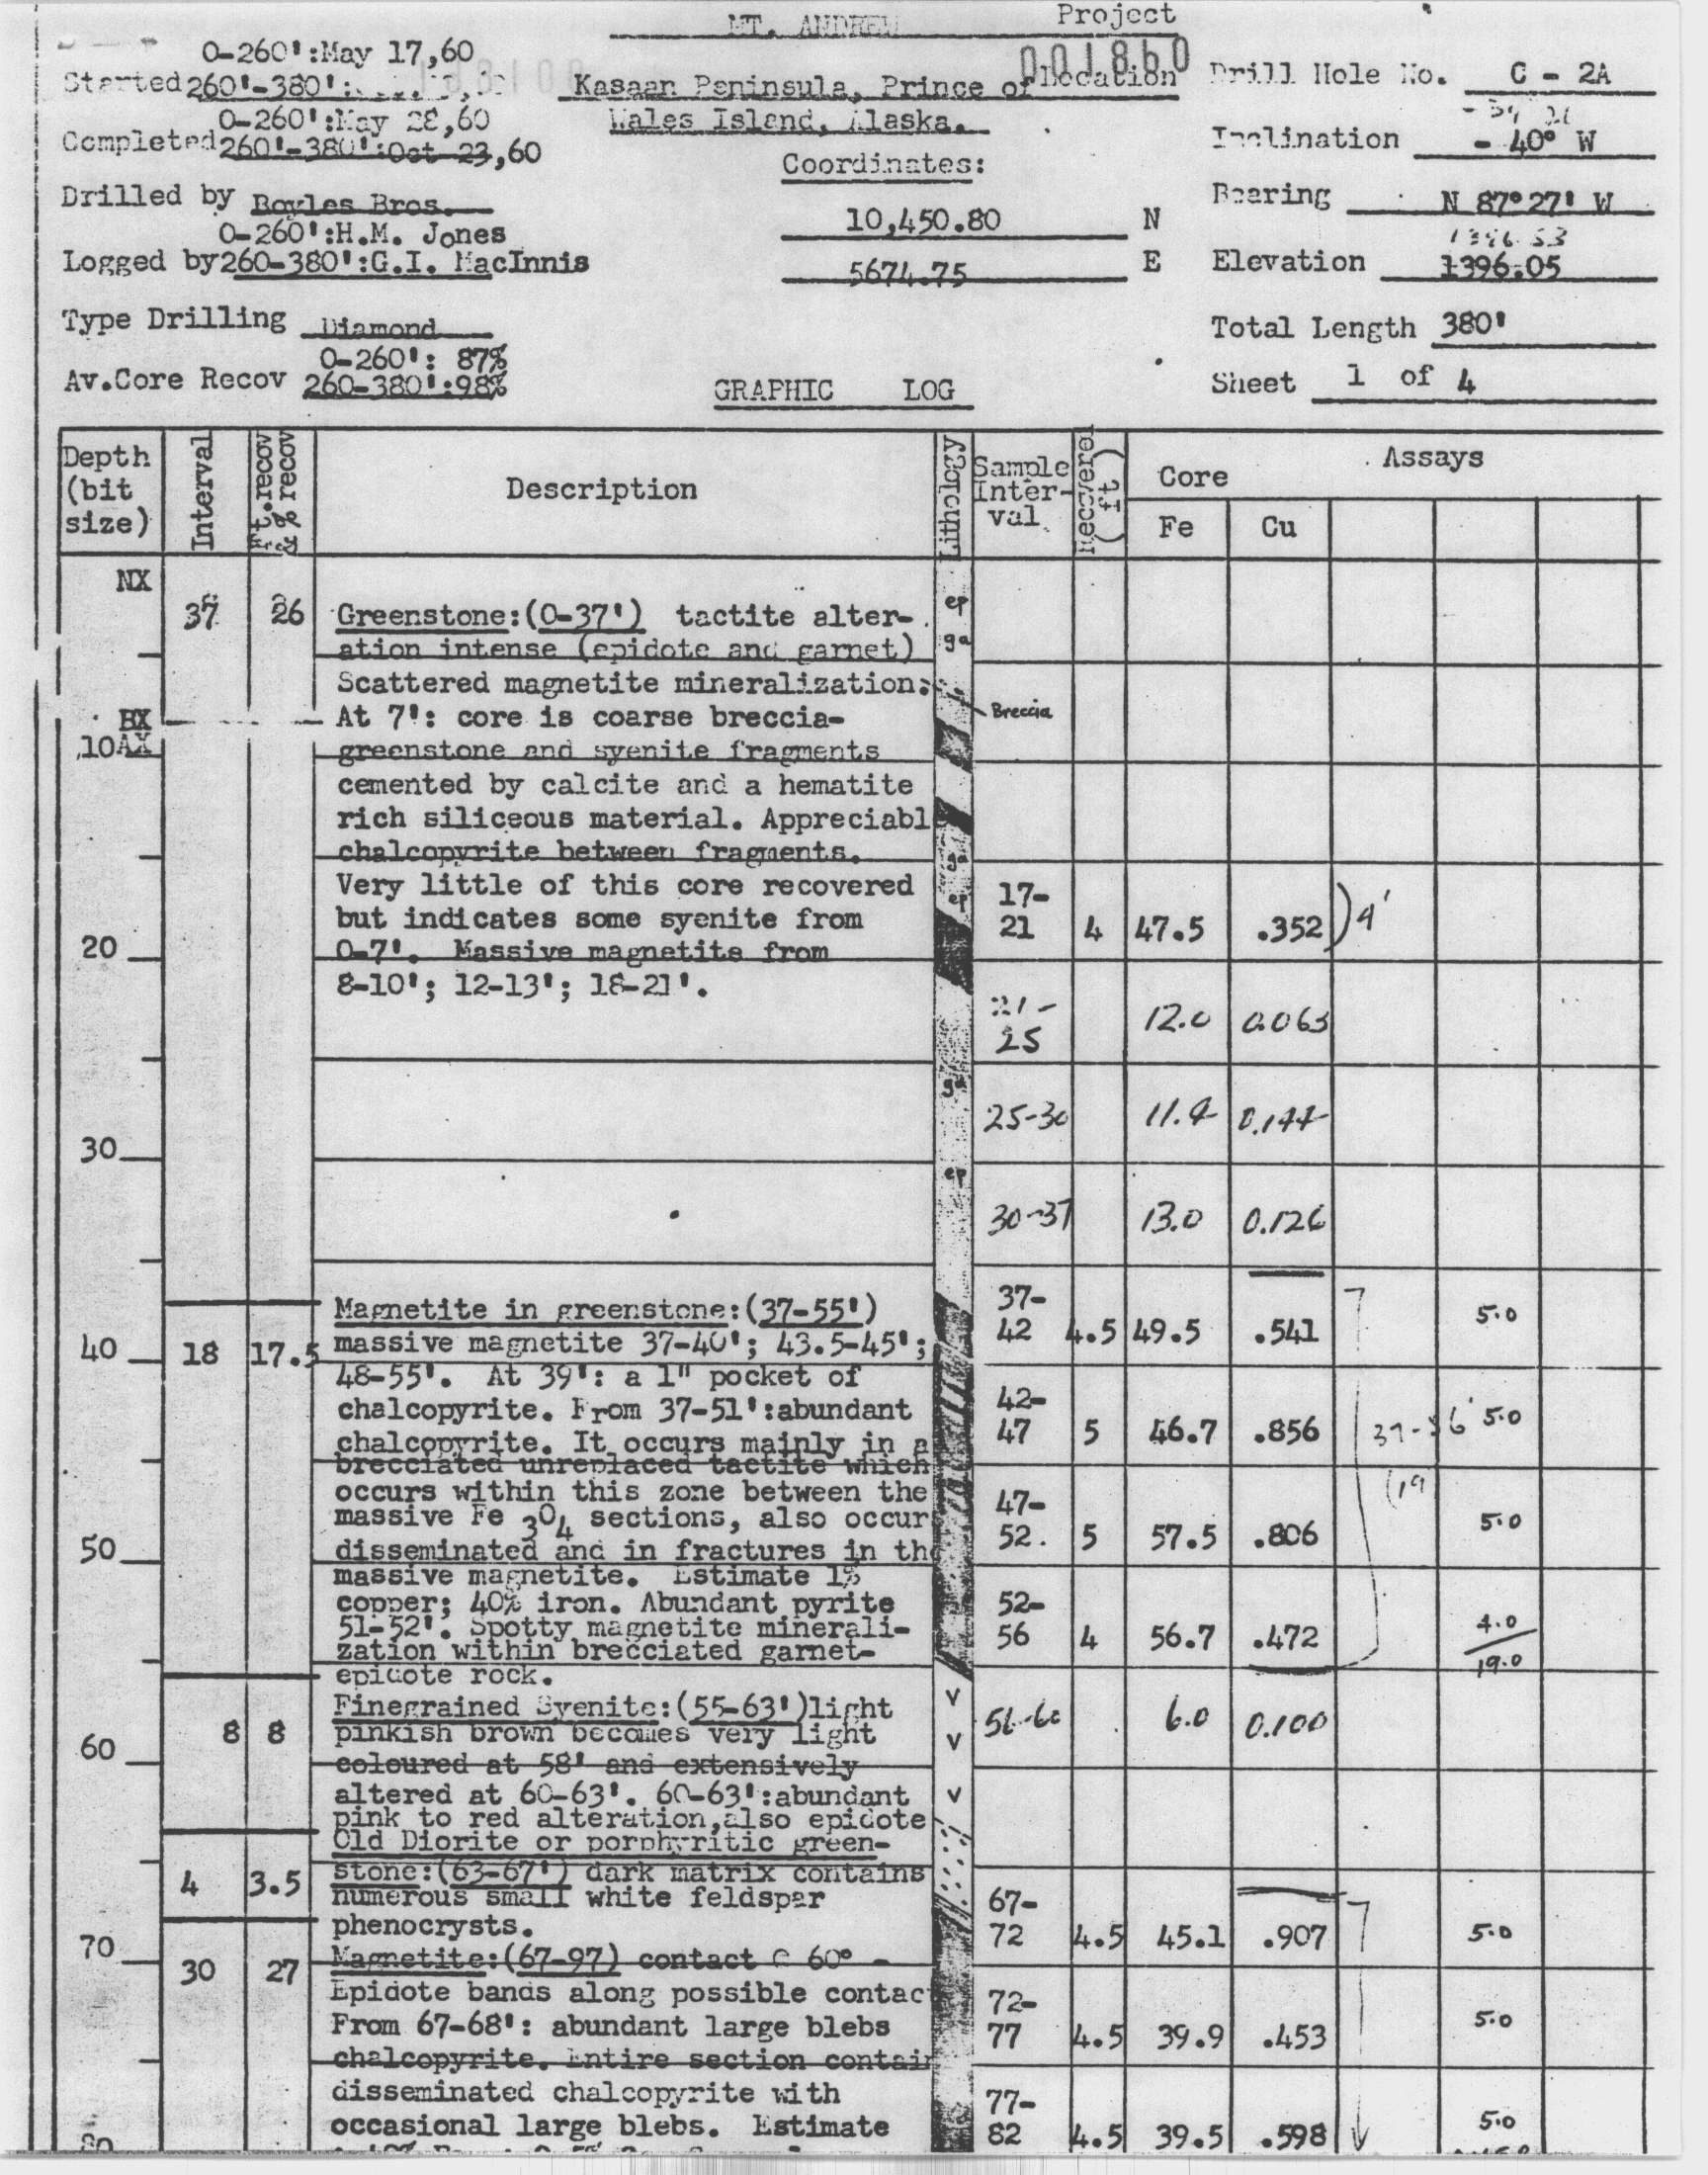 MT. ANDREW Project
001860
0-260':May 17,60
Started 260'-380':
Kasaan Peninsula, Prince of Location
Drill Hole No. C - 2A
0-260':May 28,60
Wales Island, Alaska.
Completed 260'-380':Oct 23,60
Inclination - 40° W
Coordinates:
Drilled by Boyles Bros.
Bearing N 87°27' W
10,450.80 N
0-260':H.M. Jones
Logged by 260-380':G.I. MacInnis
5674.75 E
Elevation 1396.05
Type Drilling Diamond
Total Length 380'
0-260': 87%
Av.Core Recov 260-380':98%
GRAPHIC LOG
Sheet 1 of 4
Depth (bit size)
Interval
Ft.recov & % recov
Description
Lithology
Sample Inter-val
Recovered (ft)
Core
Assays
Fe Cu
NX
37 26 Greenstone:(0-37') tactite alter- ep
ation intense (epidote and garnet) ga
Scattered magnetite mineralization:
BX At 7': core is coarse breccia- Breccia
10 AX greenstone and syenite fragments
cemented by calcite and a hematite
rich siliceous material. Appreciabl
chalcopyrite between fragments. ga
Very little of this core recovered ep 17-
but indicates some syenite from 21 4 47.5 .352 )4'
20 0-7'. Massive magnetite from
8-10'; 12-13'; 18-21'.
21-
25 12.0 0.063
ga
25-30 11.4 0.144
30
ep
30-37 13.0 0.126
Magnetite in greenstone:(37-55') 37- 5.0
40 18 17.5 massive magnetite 37-40'; 43.5-45'; 42 4.5 49.5 .541
48-55'. At 39': a 1" pocket of
chalcopyrite. From 37-51':abundant 42-
chalcopyrite. It occurs mainly in a 47 5 46.7 .856 37-56' 5.0
brecciated unreplaced tactite which
occurs within this zone between the 47- (19
massive Fe 3O4 sections, also occur 52. 5 57.5 .806 5.0
50 disseminated and in fractures in the
massive magnetite. Estimate 1%
copper; 40% iron. Abundant pyrite 52-
51-52'. Spotty magnetite minerali- 56 4 56.7 .472 4.0
zation within brecciated garnet- 19.0
epidote rock.
Finegrained Syenite:(55-63')light v
8 8 pinkish brown becomes very light 56-60 6.0 0.100
60 coloured at 58' and extensively v
altered at 60-63'. 60-63':abundant v
pink to red alteration,also epidote
Old Diorite or porphyritic green-
stone:(63-67') dark matrix contains
4 3.5 numerous small white feldspar 67-
phenocrysts. 72 4.5 45.1 .907 5.0
70 Magnetite:(67-97) contact @ 60° -
30 27 Epidote bands along possible contac 72-
From 67-68': abundant large blebs 77 4.5 39.9 .453 5.0
chalcopyrite. Entire section contain
disseminated chalcopyrite with 77-
occasional large blebs. Estimate 82 4.5 39.5 .598 5.0
80